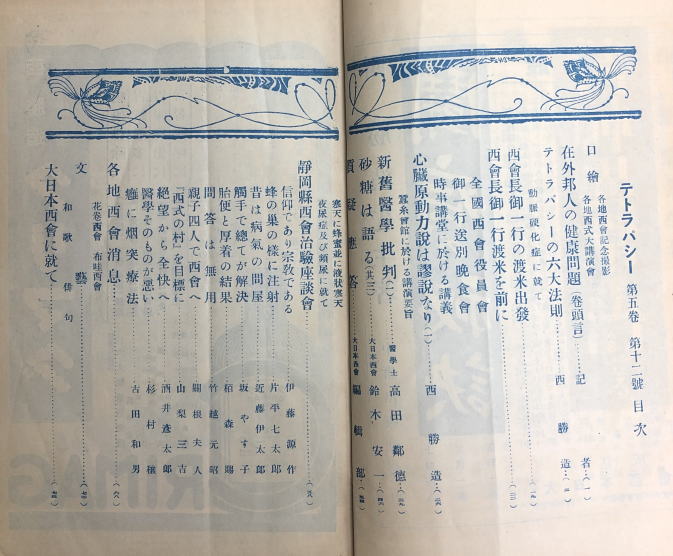 テトラパシー 第五卷 第十二號 目次
口繪 各地西會記念撮影
各地西式大講演會
在外邦人の健康問題（卷頭言） 記者…（一）
テトラパシーの六大法則 西勝造
動脈硬化症に就て
西會長御一行の渡米出發
西會長御一行渡米を前に
全國西會役員會
御一行送別晩食會
時事講堂に於ける講義
心臟原動力說は謬說なり（一） 西勝造
蠶糸會館に於ける講演要旨
新舊醫學批判（二） 醫學士 高田鄰德
砂糖は語る（其三） 大日本西會 鈴木安一
質疑應答 大日本西會 編輯部
寒天と蜂蜜並に液狀寒天
夜尿症及び頻尿に就て
靜岡縣西會治驗座談會
信仰であり宗敎である 伊藤源作
蜂の巢の樣に注射 片平七太郞
昔は病氣の問屋 近藤伊太郞
觸手で總てが解決 坂やす子
胎便と厚着の結果 栢森賜
問答は無用 竹越元昭
親子四人で西會へ 關根夫人
「西式の村」を目標に 山梨三吉
絕望から全快へ 酒井彥太郞
醫學そのものが惡い 杉村穰
癰に烟突療法 吉田和男
各地西會消息
文藝
和歌 俳句
花卷西會 布哇西會
大日本西會に就て